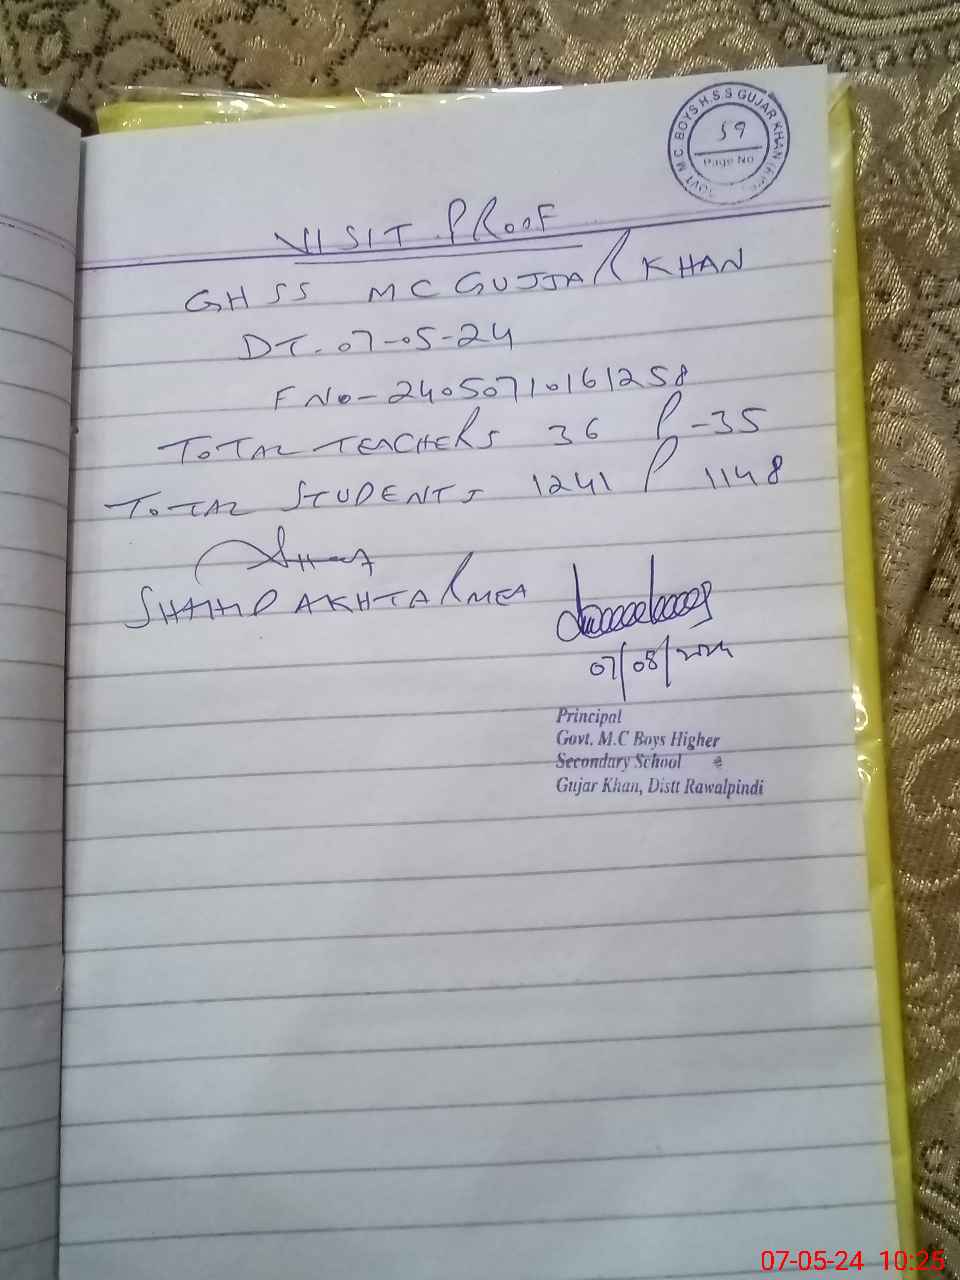 GOVT M.C. BOYS H.S.S GUJAR KHAN
59
Page No
VISIT PROOF
GHSS MC GUJJAR KHAN
DT. 07-05-24
F No-24050710161258
TOTAL TEACHERS 36 P-35
TOTAL STUDENTS 1241 P 1148
SHAHID AKHTAR MEA
07/08/2024
Principal
Govt. M.C Boys Higher
Secondary School
Gujar Khan, Distt Rawalpindi
07-05-24 10:25